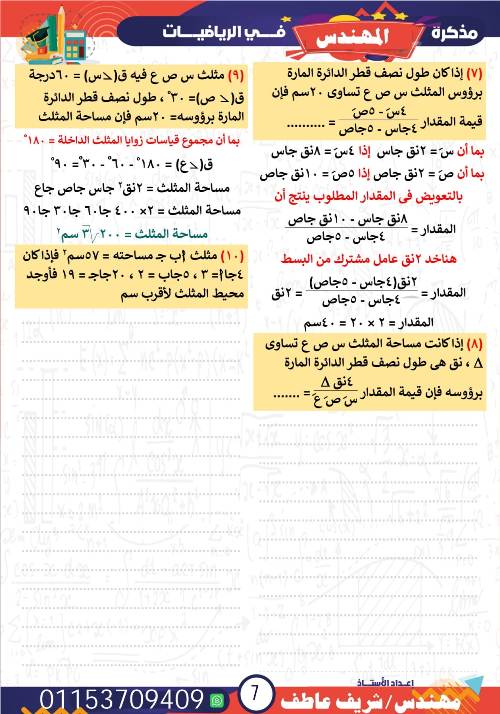 مذكرة
المهندس
فـي الرياضيـات
(٧) إذا كان طول نصف قطر الدائرة المارة
برؤوس المثلث س ص ع تساوى ٢٠سم فإن
قيمة المقدار ٤سَ - ٥صَ / ٤جاس - ٥جاص = ..........
بما أن سَ = ٢نق جاس إذا ٤سَ = ٨نق جاس
بما أن صَ = ٢نق جاص إذا ٥صَ = ١٠نق جاص
بالتعويض فى المقدار المطلوب ينتج أن
المقدار = ٨نق جاس - ١٠نق جاص / ٤جاس - ٥جاص
هناخد ٢نق عامل مشترك من البسط
المقدار = ٢نق(٤جاس - ٥جاص) / ٤جاس - ٥جاص = ٢نق
المقدار = ٢ × ٢٠ = ٤٠سم
(٨) إذا كانت مساحة المثلث س ص ع تساوى
∆ ، نق هى طول نصف قطر الدائرة المارة
برؤوسه فإن قيمة المقدار ٤نق ∆ / سَ صَ عَ = .......
(٩) مثلث س ص ع فيه ق(∠س) = ٦٠درجة
ق(∠ ص)= ٣٠° ، طول نصف قطر الدائرة
المارة برؤوسه= ٢٠سم فإن مساحة المثلث
بما أن مجموع قياسات زوايا المثلث الداخلة = ١٨٠°
ق(∠ع) = ١٨٠° - ٦٠° - ٣٠°= ٩٠°
مساحة المثلث = ٢نق٢ جاس جاص جاع
مساحة المثلث = ٢× ٤٠٠ جا٦٠ جا٣٠ جا٩٠
مساحة المثلث = ٢٠٠√٣ سم٢
(١٠) مثلث أ ب جـ مساحته = ٥٧سم٢ فإذا كان
٤جاأ= ٣ ، ٥جاب = ٢ ، ٢٠جاجـ = ١٩ فأوجد
محيط المثلث لأقرب سم
إعداد الأستاذ
مهندس/ شريف عاطف
7
01153709409